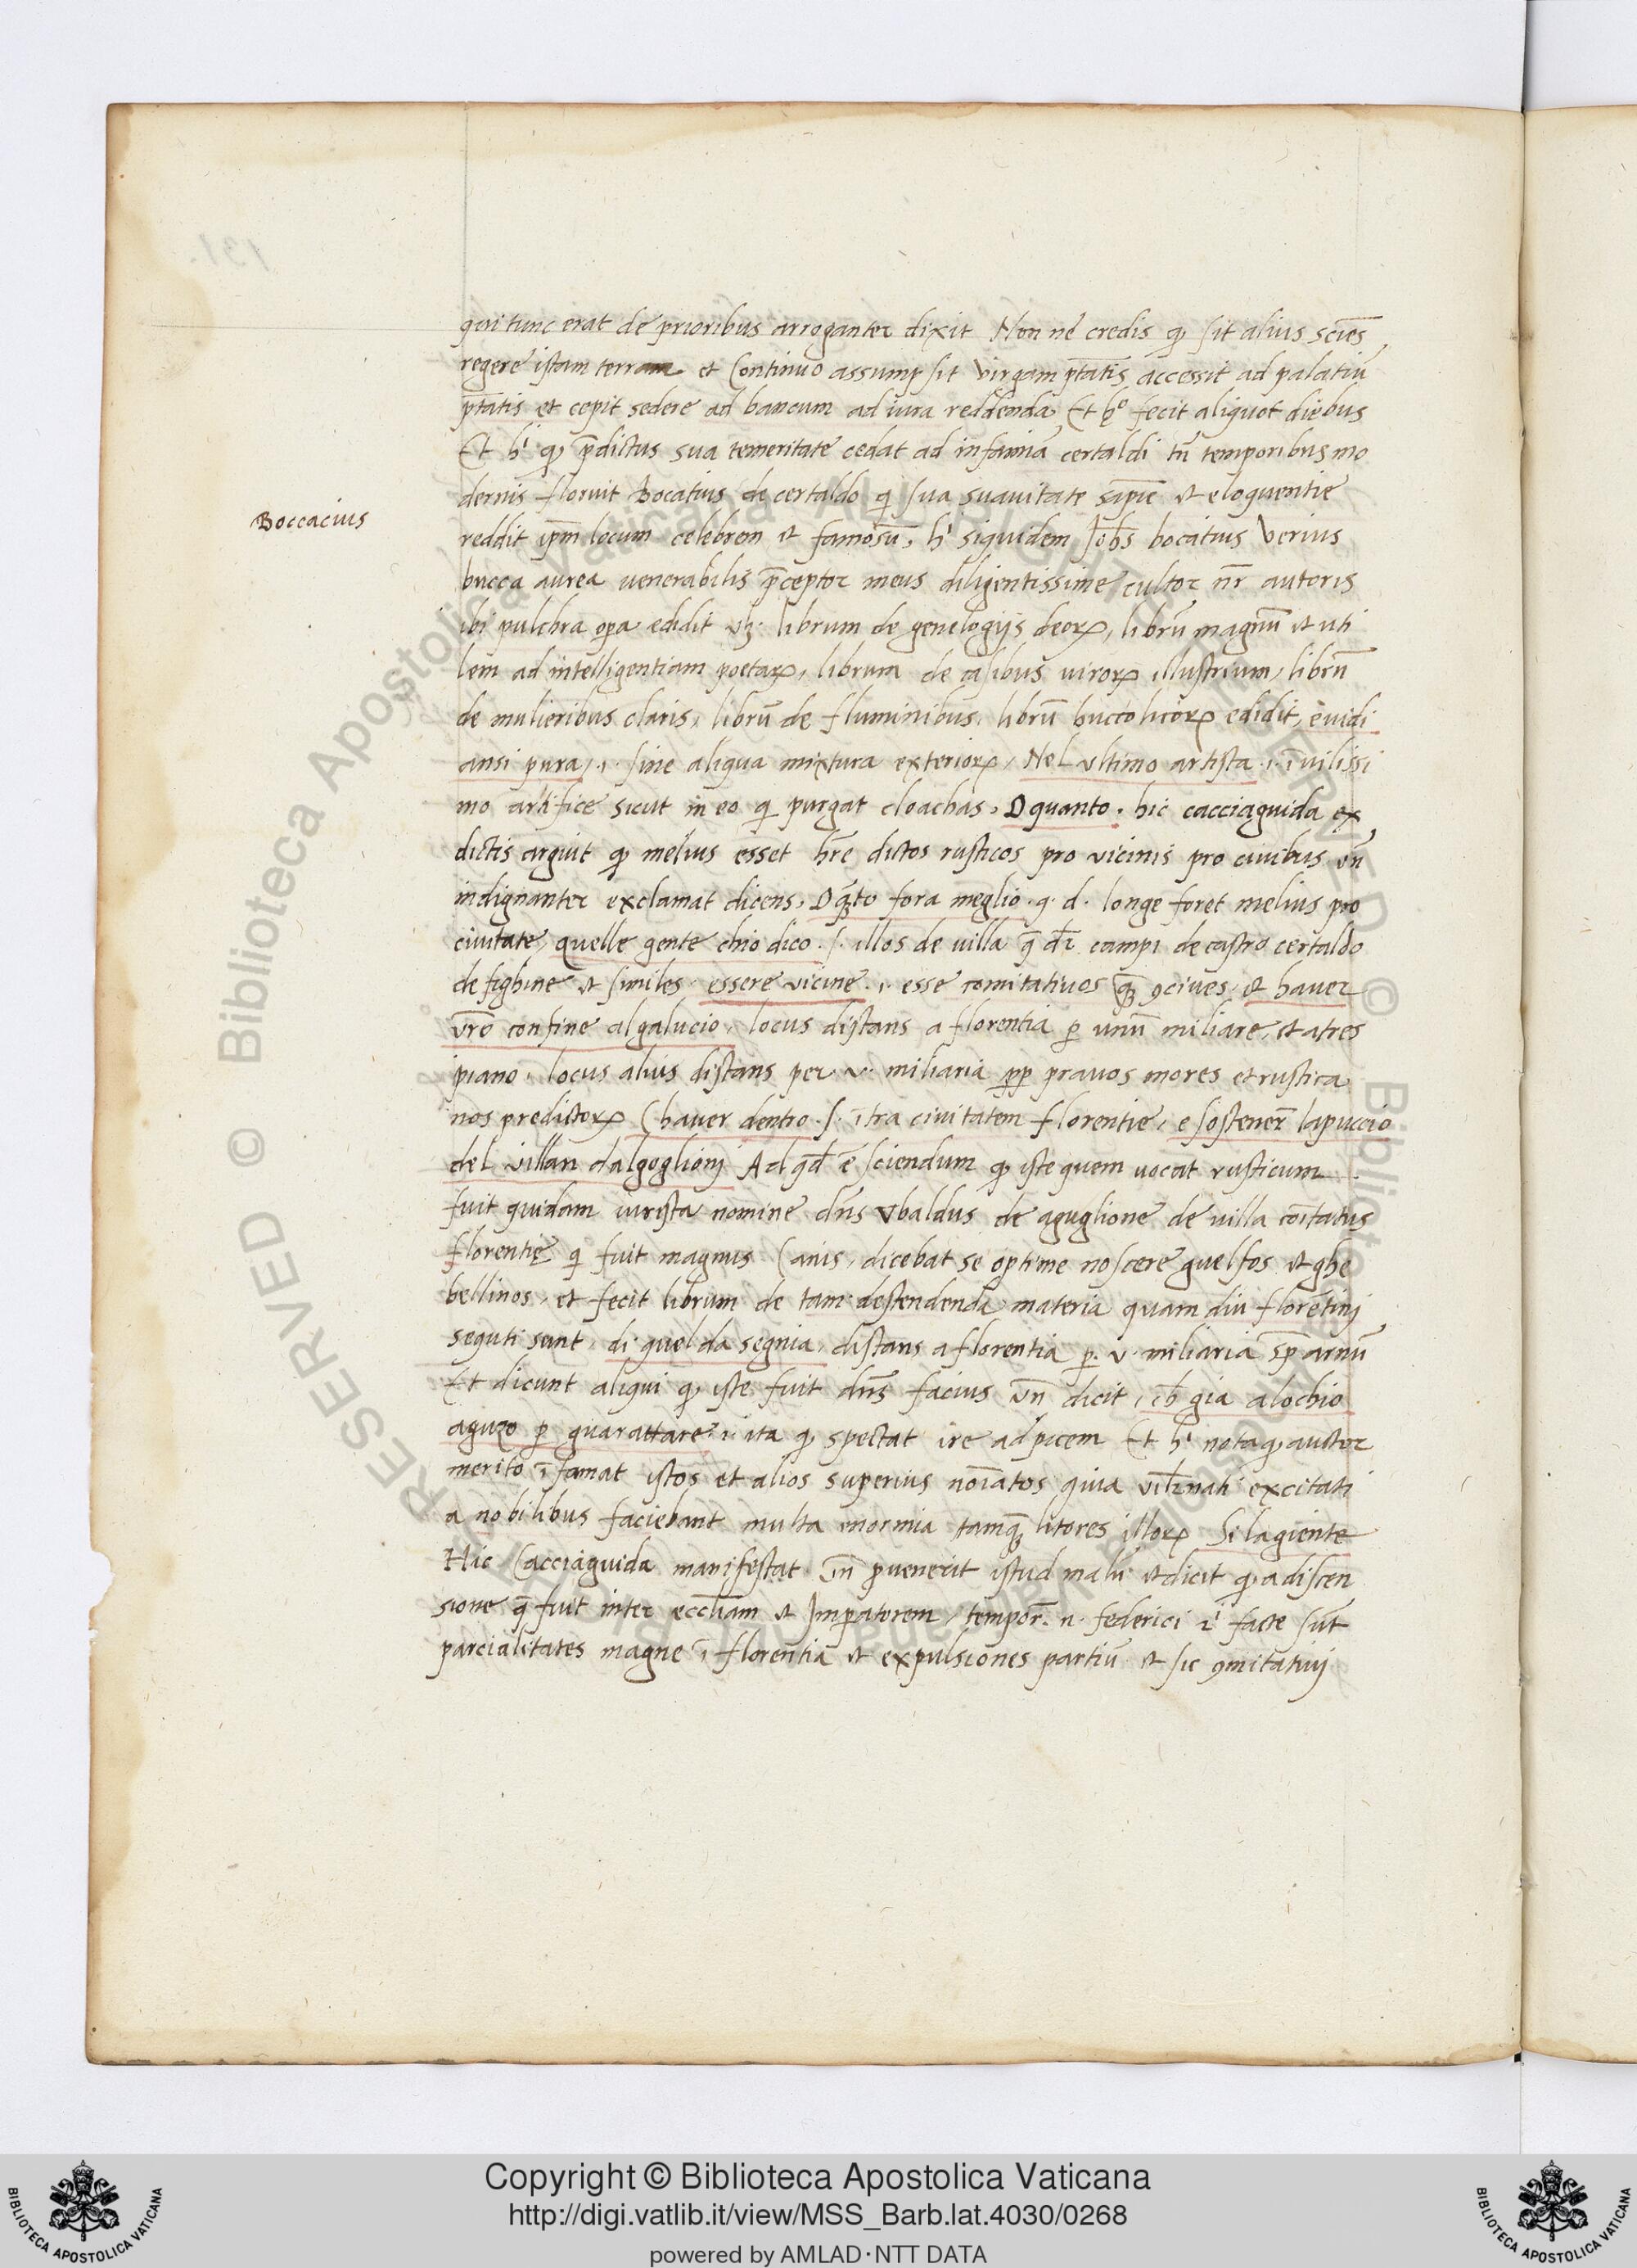 qui tunc erat de prioribus arroganter dixit Non ne credis qꝫ sit alius sciēs
regere istam terram et Continuo assumpsit virgam ptātis accessit ad palatiū
ptātis et cepit sedere ad bancum ad iura reddenda, Et hº fecit aliquot diebus
Et hˡ qꝫ p̄dictus sua temeritate cedat ad infamiā certaldi tn̄ temporibus mo
dernis floruit Bocatius de certaldo qͥ sua suauitate sapīe et eloquentie
Boccacius
reddit ip̄m locum celebrem et famosū, hˡ siquidem Joh̄s bocatius verius
bucca aurea uenerabilis p̄ceptor meus diligentissime cultor nr̄ autoris
ibi pulchra opa edidit vꝫ. librum de genelogijs deoꝝ, librū magnū et uti
lem ad intelligentiam poetaꝝ, librum de casibus uiroꝝ illustrium, librū
de mulieribus claris, librū de fluminibus, librū buccolicoꝝ edidit, euidi
ansi pura, .i. sine aliqua mixtura exterioꝝ, Nel vltimo artista .i. ī uilissi
mo artifice sicut in eo qͥ purgat cloachas, O quanto . hic cacciaguida ex
dictis arguit qꝫ melius esset hr̄e dictos rusticos pro vicinis pro ciuibus vn̄
indignanter exclamat dicens, O qꝫto fora meglio . q. d. longe foret melius pro
ciuitate, quelle gente chio dico . s. illos de uilla q̄ dr̄ campi de castro certaldo
de fighine et similes essere vicine .i. esse comitatiuos qꝫ ꝯciues, et hauer
vr̄o confine al galucio, locus distans a florentia ꝑ unū miliare, et atres
piano, locus alius distans per .v. miliaria ꝓp prauos mores et rustica
nos predictoꝝ (hauer dentro .s. ītra ciuitatem florentie, e sostener̄ lapuccio
del villan dalgoglionj Ad qd̄ ē sciendum qꝫ iste quem uocat rusticum
fuit quidam iurista nomine dn̄s Vbaldus de aguglione de uilla coītatus
florentię qͥ fuit magnus Canis, dicebat se optime noscere guelfos et ghe
bellinos, et fecit librum de tam destendenda materia quam diu florētinj
seguti sunt, di quel da segnia, distans a florentia ꝑ. v. miliaria sp̄ arnū
Et dicunt aliqui qꝫ iste fuit dn̄s facius vn̄ dicit, ch̄ gia alochio
aguzo ꝑ guarattare .i. ita qꝫ spectat ire ad picem Et hˡ nota qꝫ auctor
merito īfamat istos et alios superius noīatos quia vil̄r nati excitati
a nobilibus faciebant multa enormia tamqꝫ litores illoꝝ Si lagiente
Hic Cacciaguida manifestat vn̄ ꝓuenerit istud malū et dicit qꝫ a discen
sione q̄ fuit inter eccliam et Imperatorem, tempor̄. n. federici iˡ facte sūt
parcialitates magne ī florentia et expulsiones partiū et sic ꝯmitatiuj
Copyright © Biblioteca Apostolica Vaticana
http://digi.vatlib.it/view/MSS_Barb.lat.4030/0268
powered by AMLAD·NTT DATA